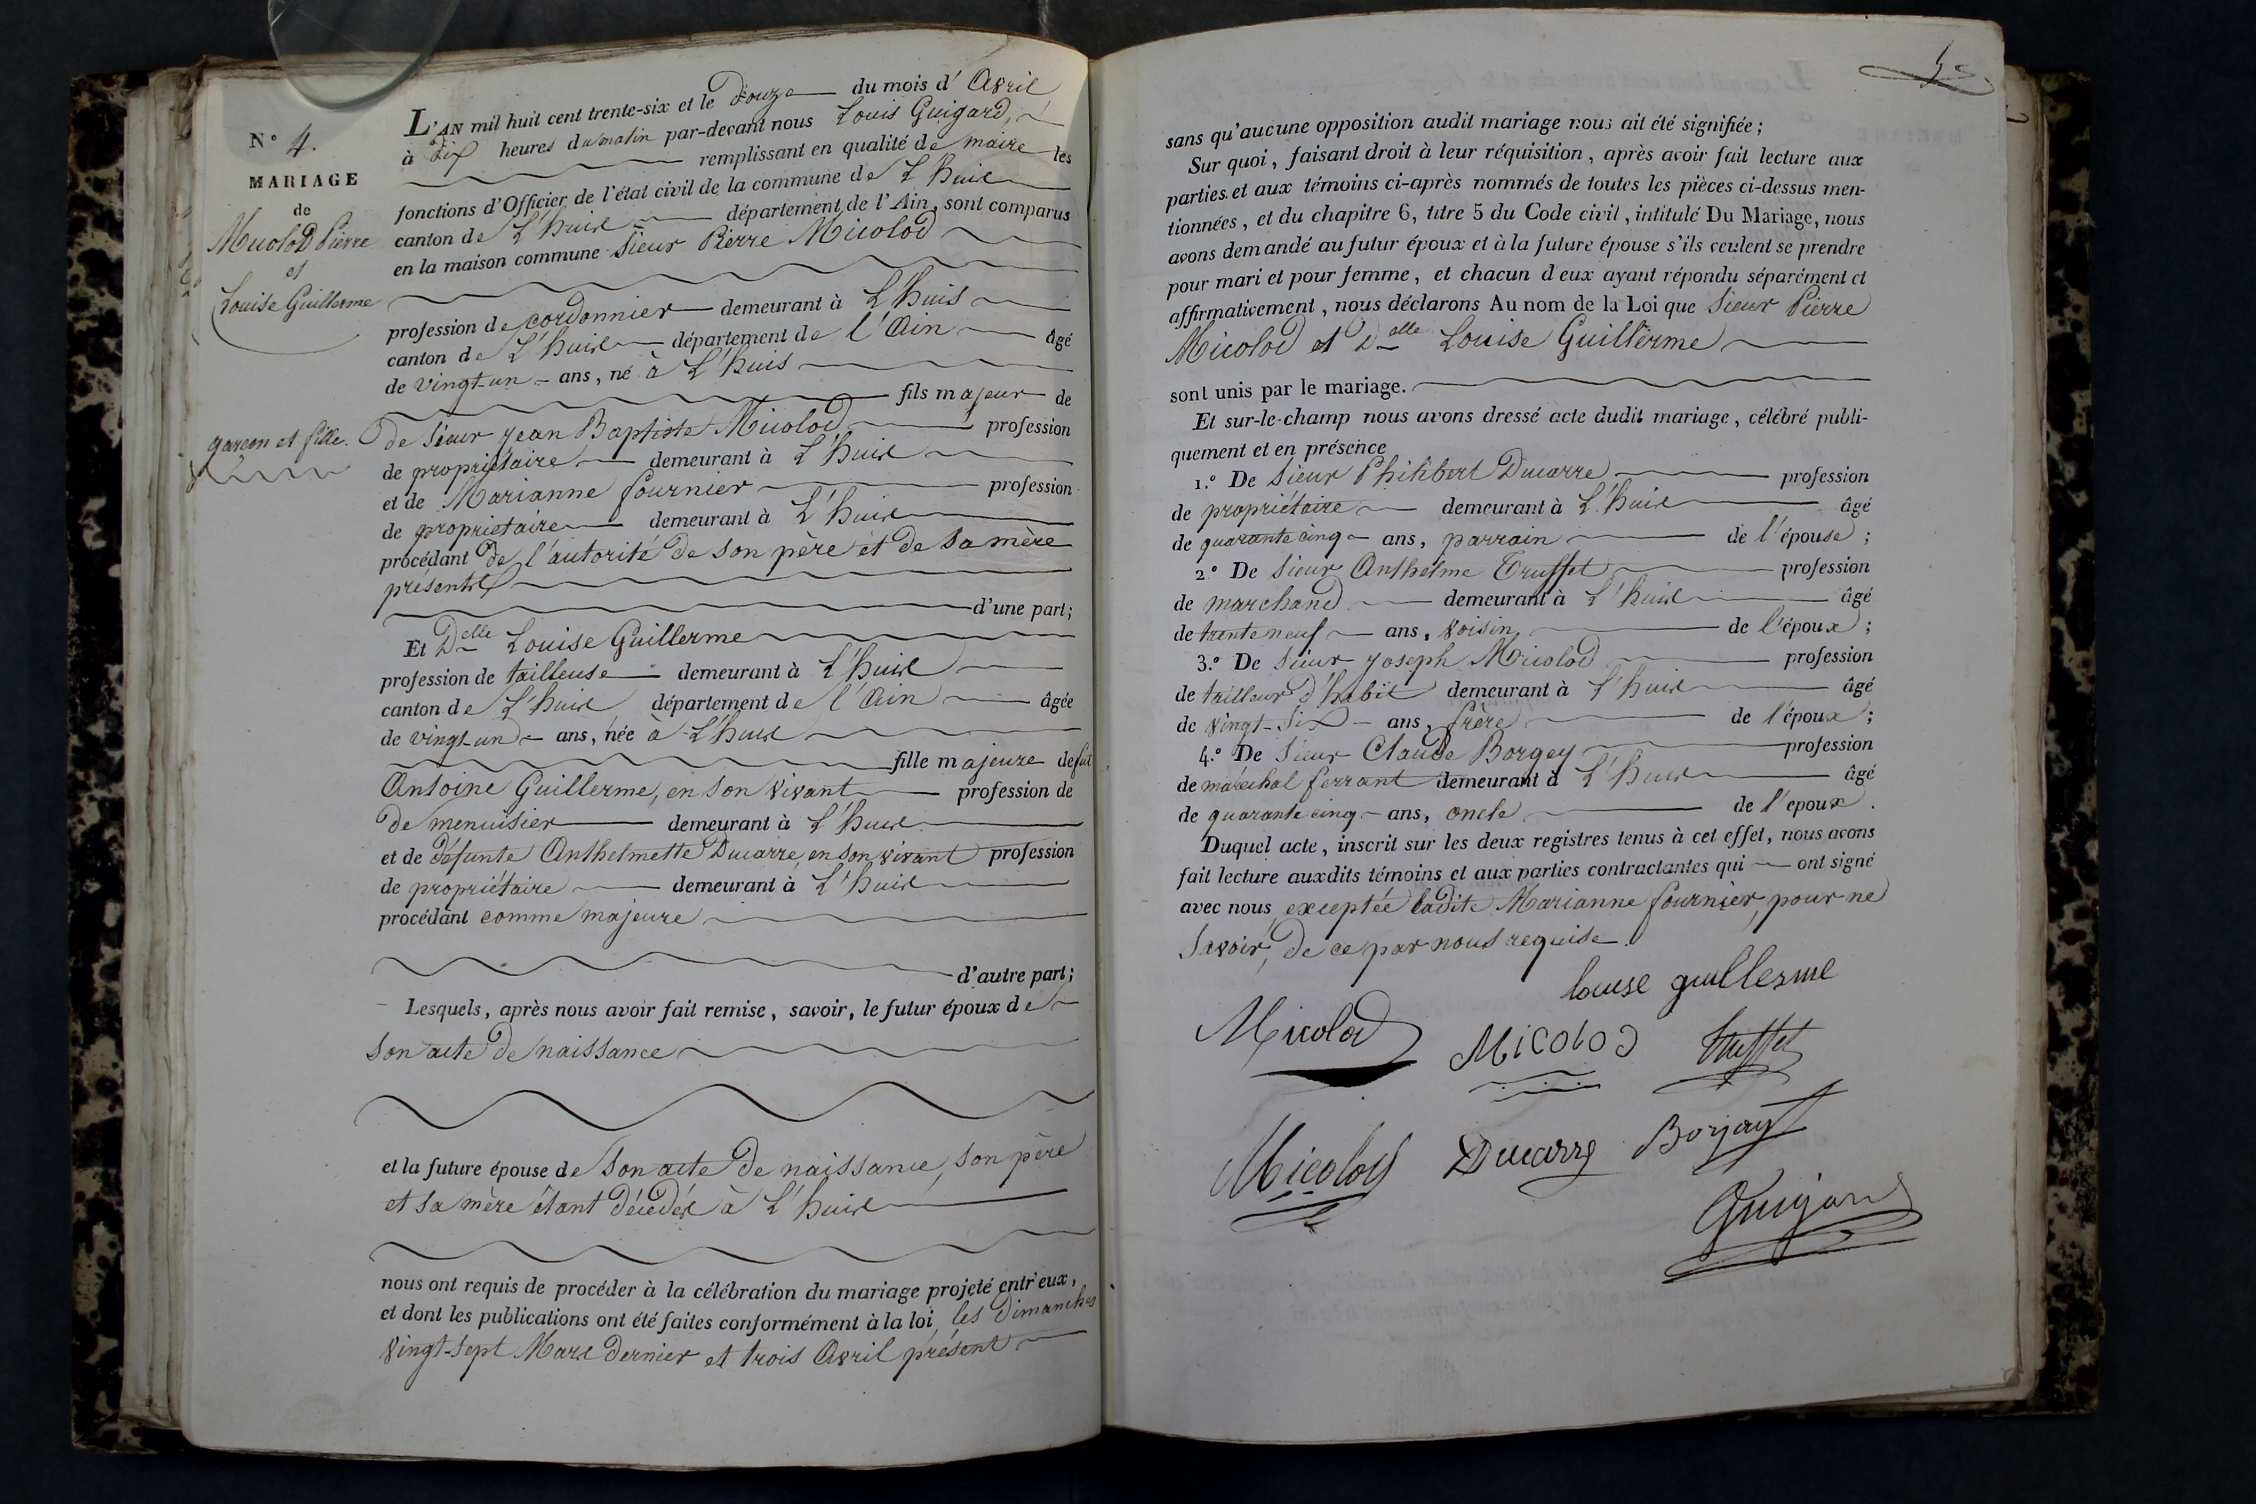 N.° 4.
MARIAGE
de
Micolod Pierre
et
Louise Guillerme
garçon et fille.
L'AN mil huit cent trente-six et le douze du mois d'Avril
à dix heures du matin par-devant nous Louis Guigard,
remplissant en qualité de maire les
fonctions d'Officier de l'état civil de la commune de L'huis
canton de L'huis département de l'Ain, sont comparus
en la maison commune Sieur Pierre Micolod
profession de cordonnier demeurant à L'huis
canton de L'huis département de l'Ain âgé
de vingt-un ans, né à L'huis
fils majeur de
de Sieur Jean Baptiste Micolod profession
de propriétaire demeurant à L'huis
et de Marianne fournier profession
de propriétaire demeurant à L'huis
procédant de l'autorité de son père et de sa mère
présents
d'une part;
Et Delle Louise Guillerme
profession de tailleuse demeurant à L'huis
canton de L'huis département de l'Ain âgée
de vingt-un ans, née à L'huis
fille majeure de fut
Antoine Guillerme, en son vivant profession de
de menuisier demeurant à L'huis
et de défunte Anthelmette Ducarre, en son vivant profession
de propriétaire demeurant à L'huis
procédant comme majeure
d'autre part;
Lesquels, après nous avoir fait remise, savoir, le futur époux de
son acte de naissance
et la future épouse de son acte de naissance, son père
et sa mère étant décédés à L'huis
nous ont requis de procéder à la célébration du mariage projeté entr'eux,
et dont les publications ont été faites conformément à la loi, les dimanches
vingt-sept Mars dernier et trois Avril présent
sans qu'aucune opposition audit mariage nous ait été signifiée;
Sur quoi, faisant droit à leur réquisition, après avoir fait lecture aux
parties et aux témoins ci-après nommés de toutes les pièces ci-dessus men-
tionnées, et du chapitre 6, titre 5 du Code civil, intitulé Du Mariage, nous
avons demandé au futur époux et à la future épouse s'ils veulent se prendre
pour mari et pour femme, et chacun d'eux ayant répondu séparément et
affirmativement, nous déclarons Au nom de la Loi que Sieur Pierre
Micolod et Delle Louise Guillerme
sont unis par le mariage.
Et sur-le-champ nous avons dressé acte dudit mariage, célébré publi-
quement et en présence
1.° De Sieur Philibert Ducarre profession
de propriétaire demeurant à L'huis âgé
de quarante cinq ans, parrain de l'épouse;
2.° De Sieur Anthelme Truffet profession
de marchand demeurant à L'huis âgé
de trente neuf ans, voisin de l'époux;
3.° De Sieur Joseph Micolod profession
de tailleur d'habit demeurant à L'huis âgé
de vingt-six ans, frère de l'époux;
4.° De Sieur Claude Borgey profession
de maréchal ferrant demeurant à L'huis âgé
de quarante cinq ans, oncle de l'époux.
Duquel acte, inscrit sur les deux registres tenus à cet effet, nous avons
fait lecture auxdits témoins et aux parties contractantes qui ont signé
avec nous, exceptée ladite Marianne fournier, pour ne
savoir, de ce par nous requise.
louise guillerme
Micolod MICOLOD Truffet
Micolod Ducarre Borjay
Guigard